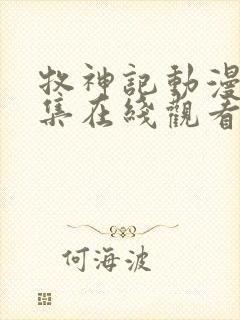 牧神記動漫
集在綫觀看
何海波